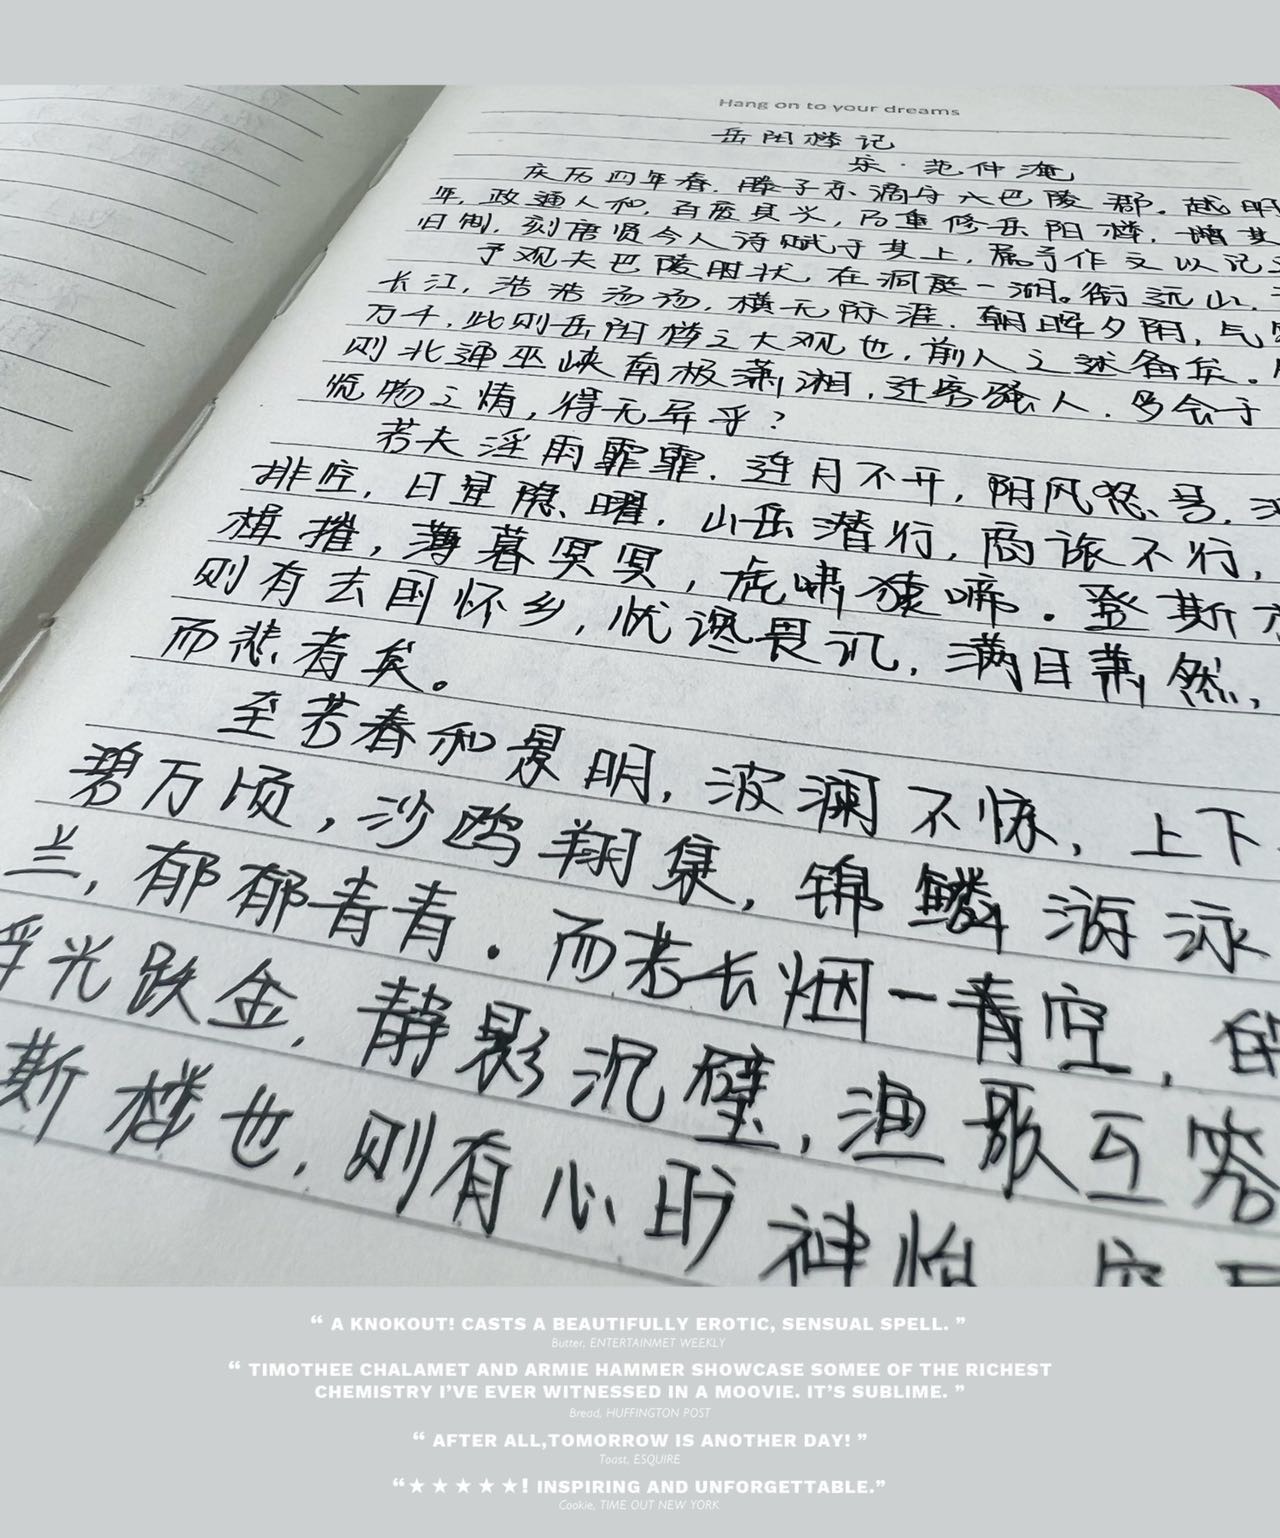 Hang on to your dreams
岳阳楼记
宋·范仲淹
庆历四年春，滕子京谪守巴陵郡。越明
年，政通人和，百废具兴，乃重修岳阳楼，增其
旧制，刻唐贤今人诗赋于其上，属予作文以记
予观夫巴陵胜状，在洞庭一湖。衔远山，
长江，浩浩汤汤，横无际涯，朝晖夕阴，气
万千，此则岳阳楼之大观也，前人之述备矣。
则北通巫峡南极潇湘，迁客骚人，多会于
览物之情，得无异乎？
若夫淫雨霏霏，连月不开，阴风怒号，
排空，日星隐曜，山岳潜行，商旅不行，
楫摧，薄暮冥冥，虎啸猿啼。登斯
则有去国怀乡，忧谗畏讥，满目萧然，
而悲者矣。
至若春和景明，波澜不惊，上下
碧万顷，沙鸥翔集，锦鳞游泳
兰，郁郁青青。而若长烟一青空，
浮光跃金，静影沉璧，渔歌互答
斯楼也，则有心旷神怡
“ A KNOKOUT! CASTS A BEAUTIFULLY EROTIC, SENSUAL SPELL. ”
Butter, ENTERTAINMET WEEKLY
“ TIMOTHEE CHALAMET AND ARMIE HAMMER SHOWCASE SOMEE OF THE RICHEST
CHEMISTRY I’VE EVER WITNESSED IN A MOOVIE. IT’S SUBLIME. ”
Bread, HUFFINGTON POST
“ AFTER ALL,TOMORROW IS ANOTHER DAY! ”
Toast, ESQUIRE
“★★★★★! INSPIRING AND UNFORGETTABLE.”
Cookie, TIME OUT NEW YORK